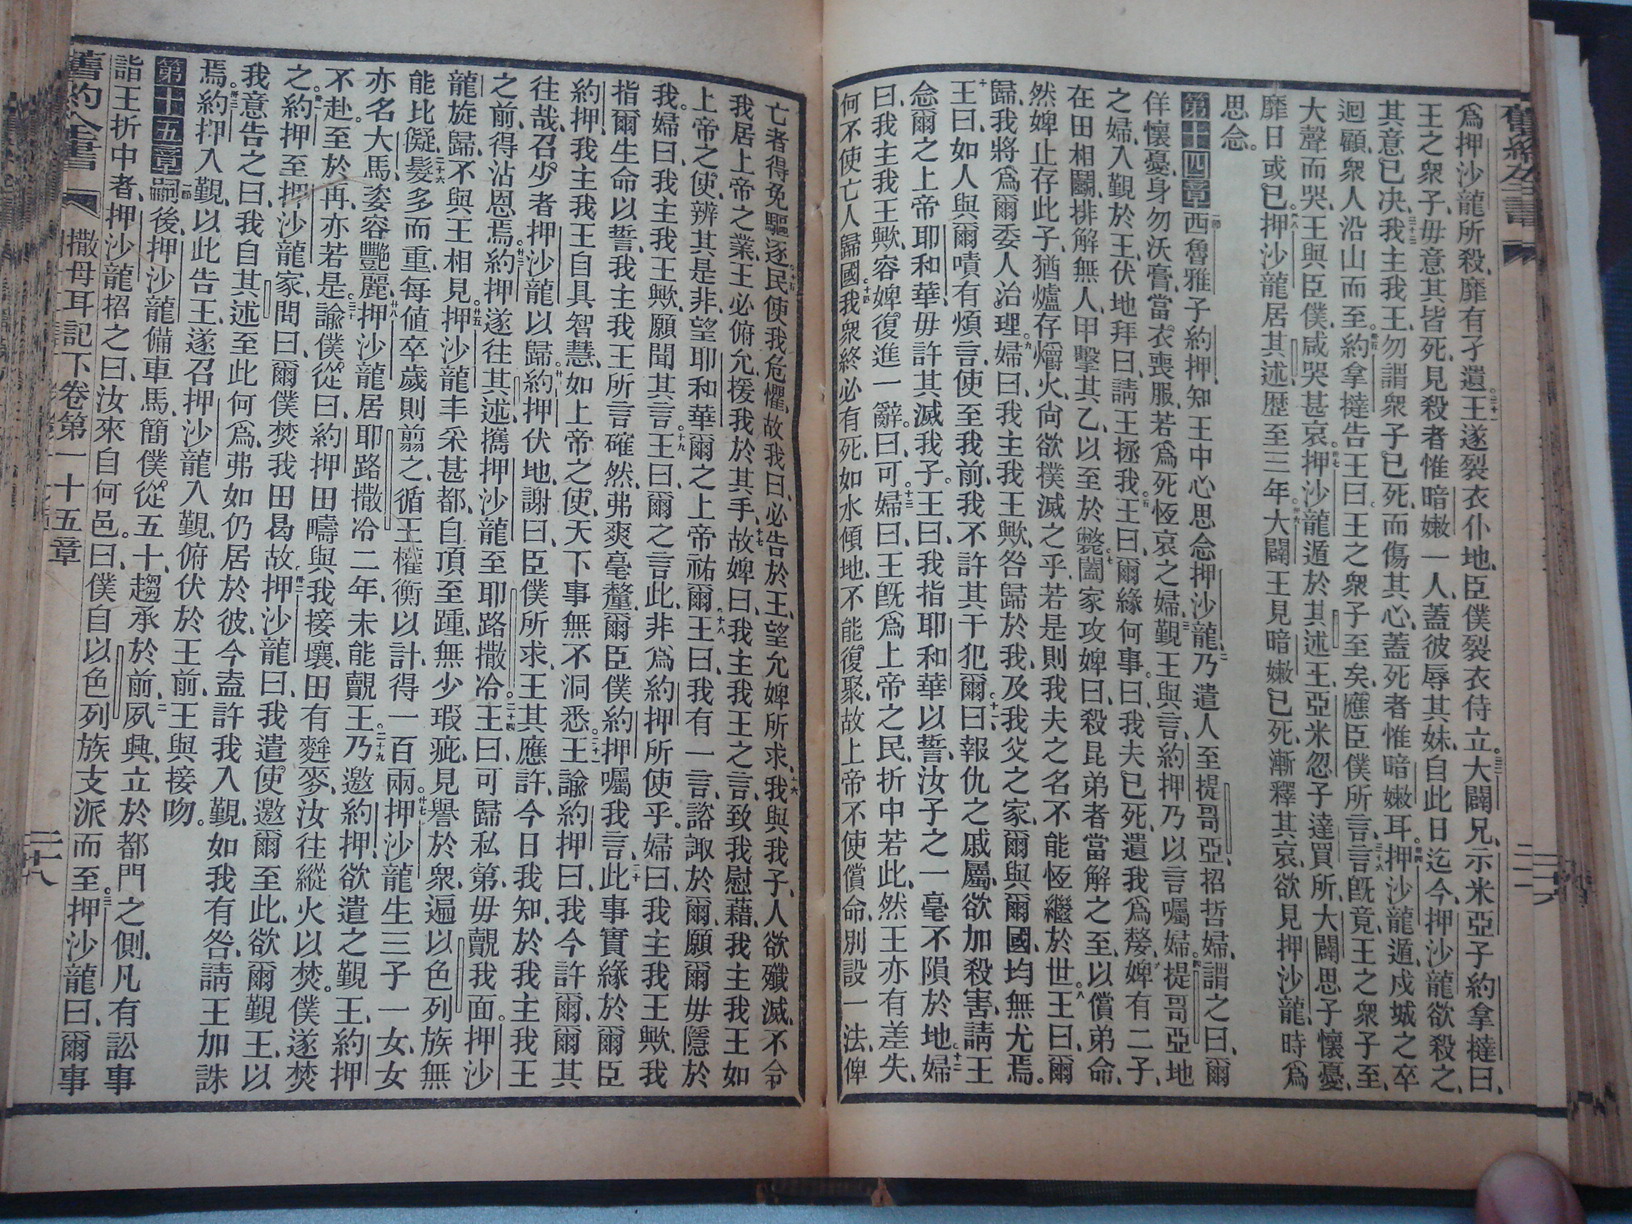 爲押沙龍所殺、靡有孑遺。王遂裂衣仆地、臣僕裂衣侍立。大闢兄、示米亞子約拿撻曰、
王之衆子、毋意其皆死、見殺者惟暗嫩一人、蓋彼辱其妹、自此日迄今、押沙龍欲殺之、
其意已决、我主我王、勿謂衆子已死、而傷其心、蓋死者惟暗嫩耳。押沙龍遁、戍城之卒
迴顧、衆人沿山而至。約拿撻告王曰、王之衆子至矣、應臣僕所言。言旣竟、王之衆子至、
大聲而哭、王與臣僕咸哭甚哀。押沙龍遁於其述王、亞米忽子達買所、大闢思子懷憂、
靡日或已。押沙龍居其述、歷至三年。大闢王見暗嫩已死、漸釋其哀、欲見押沙龍、時爲
思念。
第十四章 西魯雅子約押、知王中心思念押沙龍、乃遣人至提哥亞、招哲婦、謂之曰、爾
佯懷憂、身勿沃膏、當衣喪服、若爲死恆哀之婦、覲王與言、約押乃以言囑婦。提哥亞地
之婦、入覲於王、伏地拜曰、請王拯我。王曰、爾緣何事。曰、我夫已死、遺我爲嫠、婢有二子、
在田相鬭、排解無人、甲擊其乙、以至於斃。闔家攻婢曰、殺昆弟者當解之至、以償弟命、
然婢止存此子、猶爐存爝火、尙欲撲滅之乎、若是則我夫之名、不能恆繼於世。王曰、爾
歸、我將爲爾委人治理。婦曰、我主我王歟、咎歸於我、及我父之家、爾與爾國、均無尤焉。
王曰、如人與爾嘖有煩言、使至我前、我不許其干犯爾。曰、報仇之戚屬、欲加殺害、請王
念爾之上帝耶和華、毋許其滅我子。王曰、我指耶和華以誓、汝子之一毫不隕於地。婦
曰、我主我王歟、容婢復進一辭。曰、可。婦曰、王旣爲上帝之民、折中若此、然王亦有差失、
何不使亡人歸國。我衆終必有死、如水傾地、不能復聚、故上帝不使償命、別設一法、俾
亡者得免驅逐。民使我危懼、故我曰、必告於王、望允婢所求。我與我子、人欲殲滅、不令
我居上帝之業、王必俯允、援我於其手。故婢曰、我主我王之言、致我慰藉、我主我王如
上帝之使、辨其是非、望耶和華爾之上帝祐爾。王曰、我有一言、諮諏於爾、願爾毋隱於
我。婦曰、我主我王歟、願聞其言。王曰、爾之言此、非爲約押所使乎。婦曰、我主我王歟、我
指爾生命以誓、我主我王所言確然、弗爽毫釐、爾臣僕約押囑我言、此事實緣於爾臣
約押、我主我王自具智慧、如上帝之使、天下事無不洞悉。王諭約押曰、我今許爾、爾其
往哉、召少者押沙龍以歸。約押伏地謝曰、臣僕所求、王其應許、今日我知於我主我王
之前、得沾恩焉。約押遂往其述、攜押沙龍至耶路撒冷。王曰、可歸私第、毋覿我面。押沙
龍旋歸、不與王相見。押沙龍丰采甚都、自頂至踵、無少瑕疵、見譽於衆、遍以色列族無
能比儗。髮多而重、每値卒歲則翦之、循王權衡以計、得一百兩。押沙龍生三子一女、女
亦名大馬、姿容豔麗。押沙龍居耶路撒冷二年、未能覿王。乃邀約押、欲遣之覲王、約押
不赴、至於再、亦若是。諭僕從曰、約押田疇與我接壤、田有麰麥、汝往縱火以焚。僕遂焚
之。約押至押沙龍家、問曰、爾僕焚我田曷故。押沙龍曰、我遣使邀爾至此、欲爾覲王、以
我意告之曰、我自其述至此何爲、弗如仍居於彼、今盍許我入覲、如我有咎、請王加誅
焉。約押入覲、以此告王、遂召押沙龍入覲、俯伏於王前、王與接吻。
第十五章 嗣後、押沙龍備車馬、簡僕從五十、趨承於前。夙興、立於都門之側、凡有訟事
詣王折中者、押沙龍招之曰、汝來自何邑。曰、僕自以色列族支派而至。押沙龍曰、爾事
舊約全書 撒母耳記下卷 第一十五章